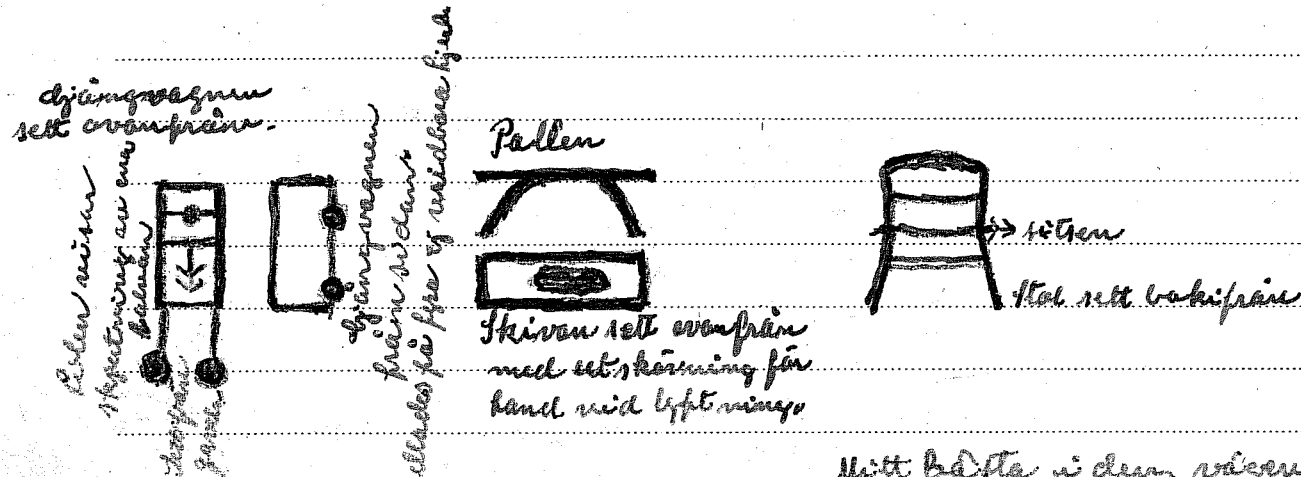 djängvagnen
sett ovanfrån.
Pilen visar
skjutning av ena
halvan
djängvagnen
från sidan
på fyra ej vridbara hjul
Pallen
Skivan sett ovanfrån
med utskärning för
hand vid lyftning.
sitsen
Stol sett bakifrån
Mitt Bästa i den vägen